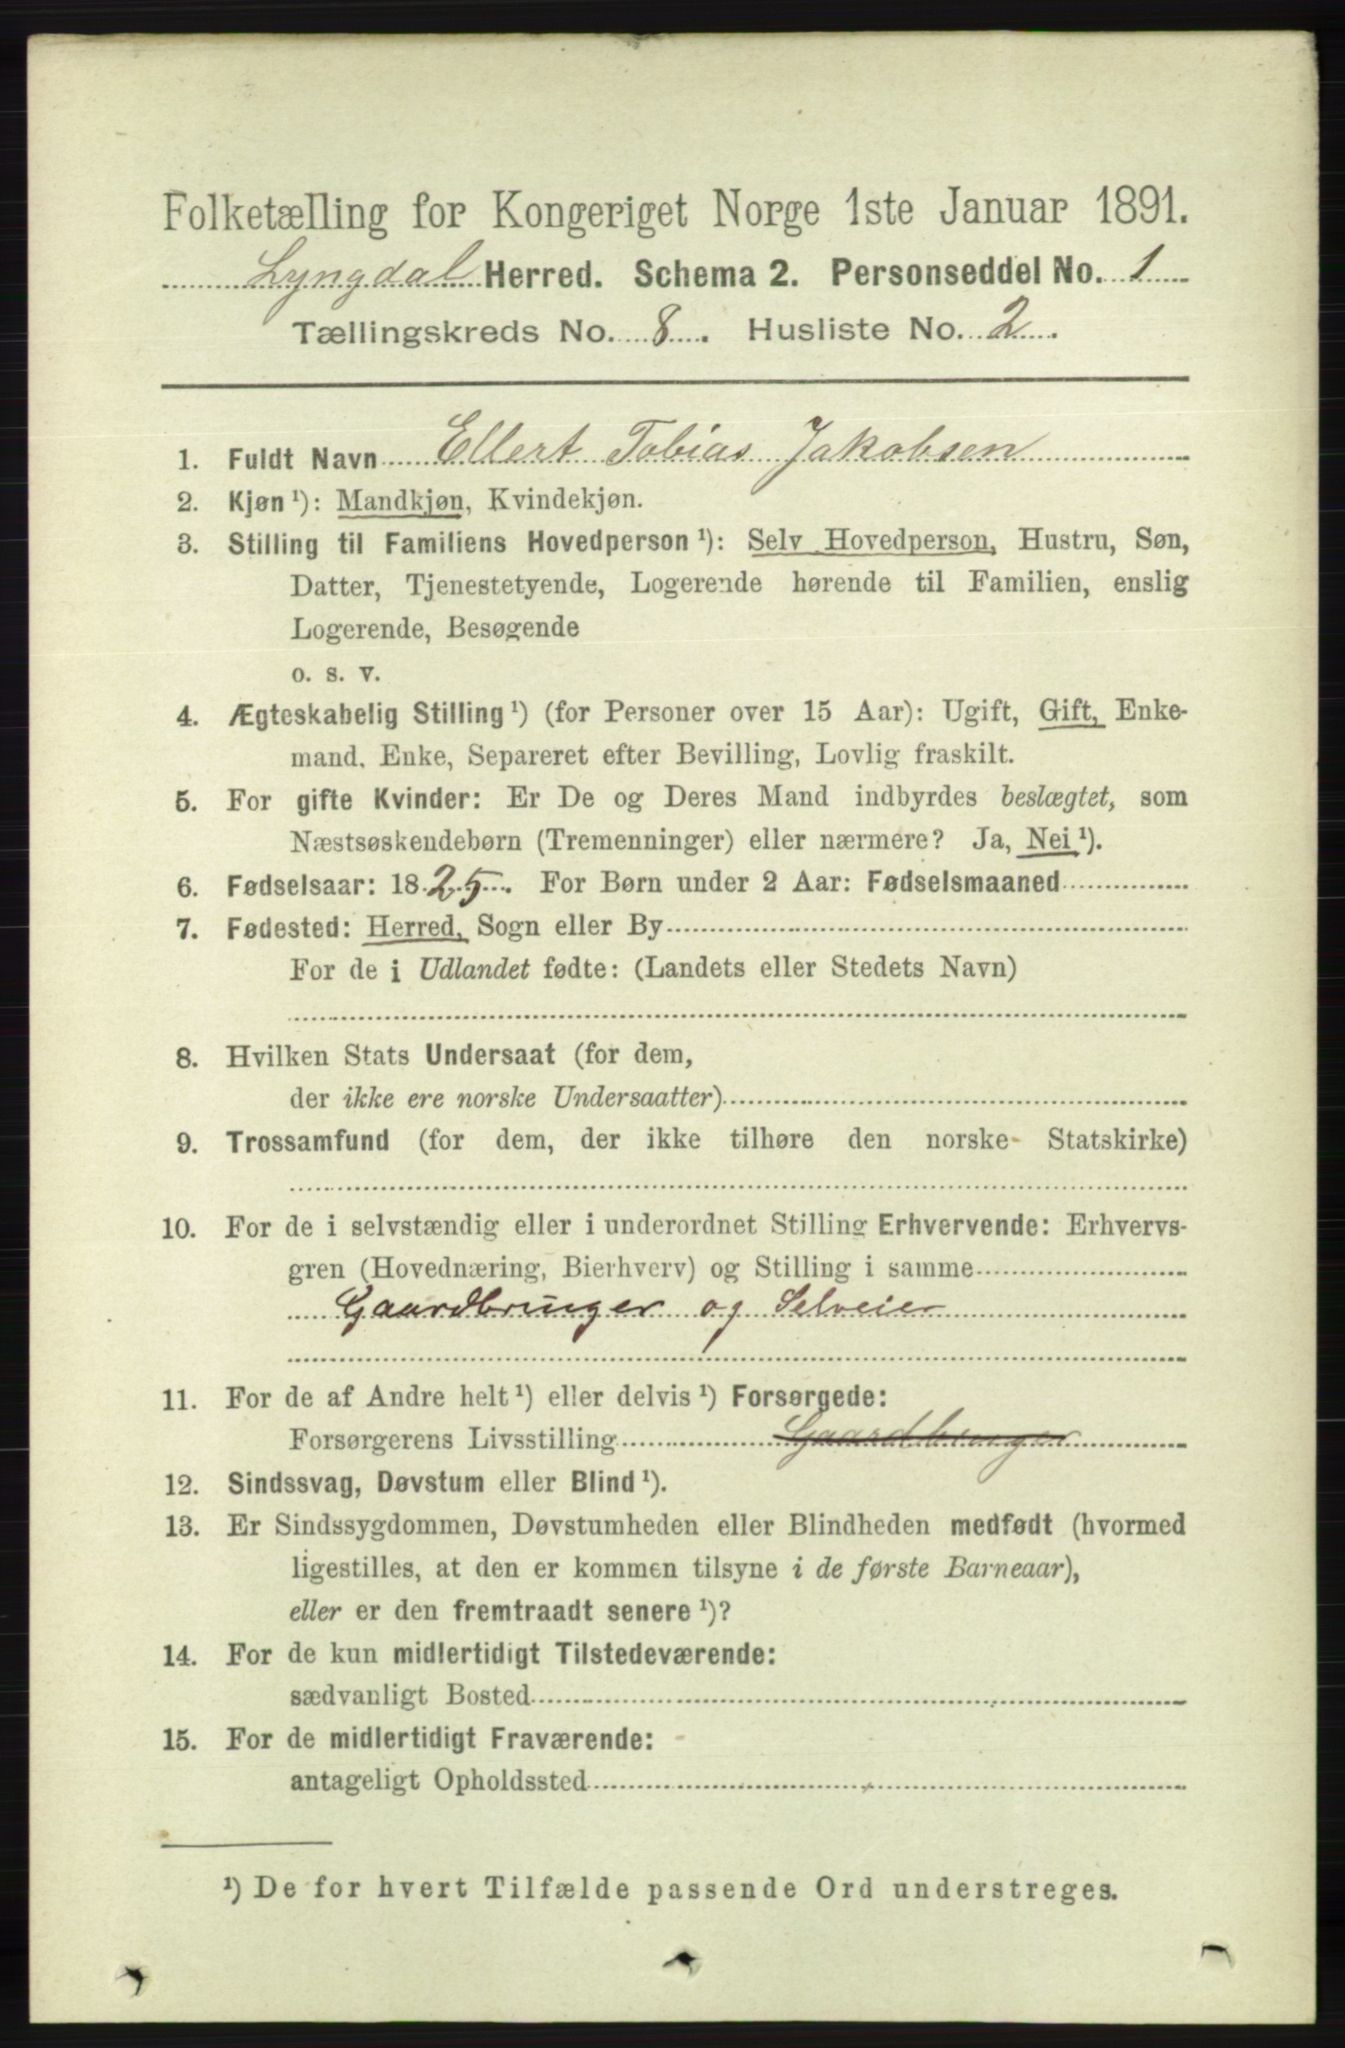 Folketælling for Kongeriget Norge 1ste Januar 1891.
Lyngdal Herred. Schema 2. Personseddel No. 1
Tællingskreds No. 8. Husliste No. 2.
1. Fuldt Navn Ellert Tobias Jakobsen
2. Kjøn¹): Mandkjøn, Kvindekjøn.
3. Stilling til Familiens Hovedperson¹): Selv Hovedperson, Hustru, Søn,
Datter, Tjenestetyende, Logerende hørende til Familien, enslig
Logerende, Besøgende
o. s. v.
4. Ægteskabelig Stilling¹) (for Personer over 15 Aar): Ugift, Gift, Enke-
mand, Enke, Separeret efter Bevilling, Lovlig fraskilt.
5. For gifte Kvinder: Er De og Deres Mand indbyrdes beslægtet, som
Næstsøskendebørn (Tremenninger) eller nærmere? Ja, Nei¹).
6. Fødselsaar: 1825. For Børn under 2 Aar: Fødselsmaaned
7. Fødested: Herred, Sogn eller By
For de i Udlandet fødte: (Landets eller Stedets Navn)
8. Hvilken Stats Undersaat (for dem,
der ikke ere norske Undersaatter)
9. Trossamfund (for dem, der ikke tilhøre den norske Statskirke)
10. For de i selvstændig eller i underordnet Stilling Erhvervende: Erhvervs-
gren (Hovednæring, Bierhverv) og Stilling i samme
Gaardbruger og Selveier
11. For de af Andre helt¹) eller delvis¹) Forsørgede:
Forsørgerens Livsstilling Gaardbruger
12. Sindssvag, Døvstum eller Blind¹).
13. Er Sindssygdommen, Døvstumheden eller Blindheden medfødt (hvormed
ligestilles, at den er kommen tilsyne i de første Barneaar),
eller er den fremtraadt senere¹)?
14. For de kun midlertidigt Tilstedeværende:
sædvanligt Bosted
15. For de midlertidigt Fraværende:
antageligt Opholdssted
¹) De for hvert Tilfælde passende Ord understreges.